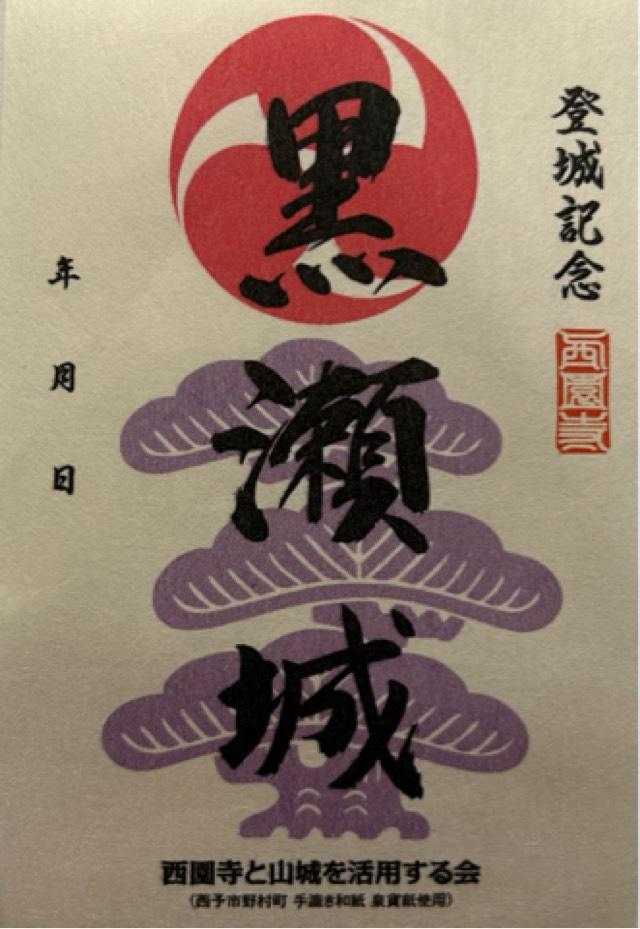 登城記念
西園寺
黒瀬城
年 月 日
西園寺と山城を活用する会
(西予市野村町 手漉き和紙 泉貨紙使用)